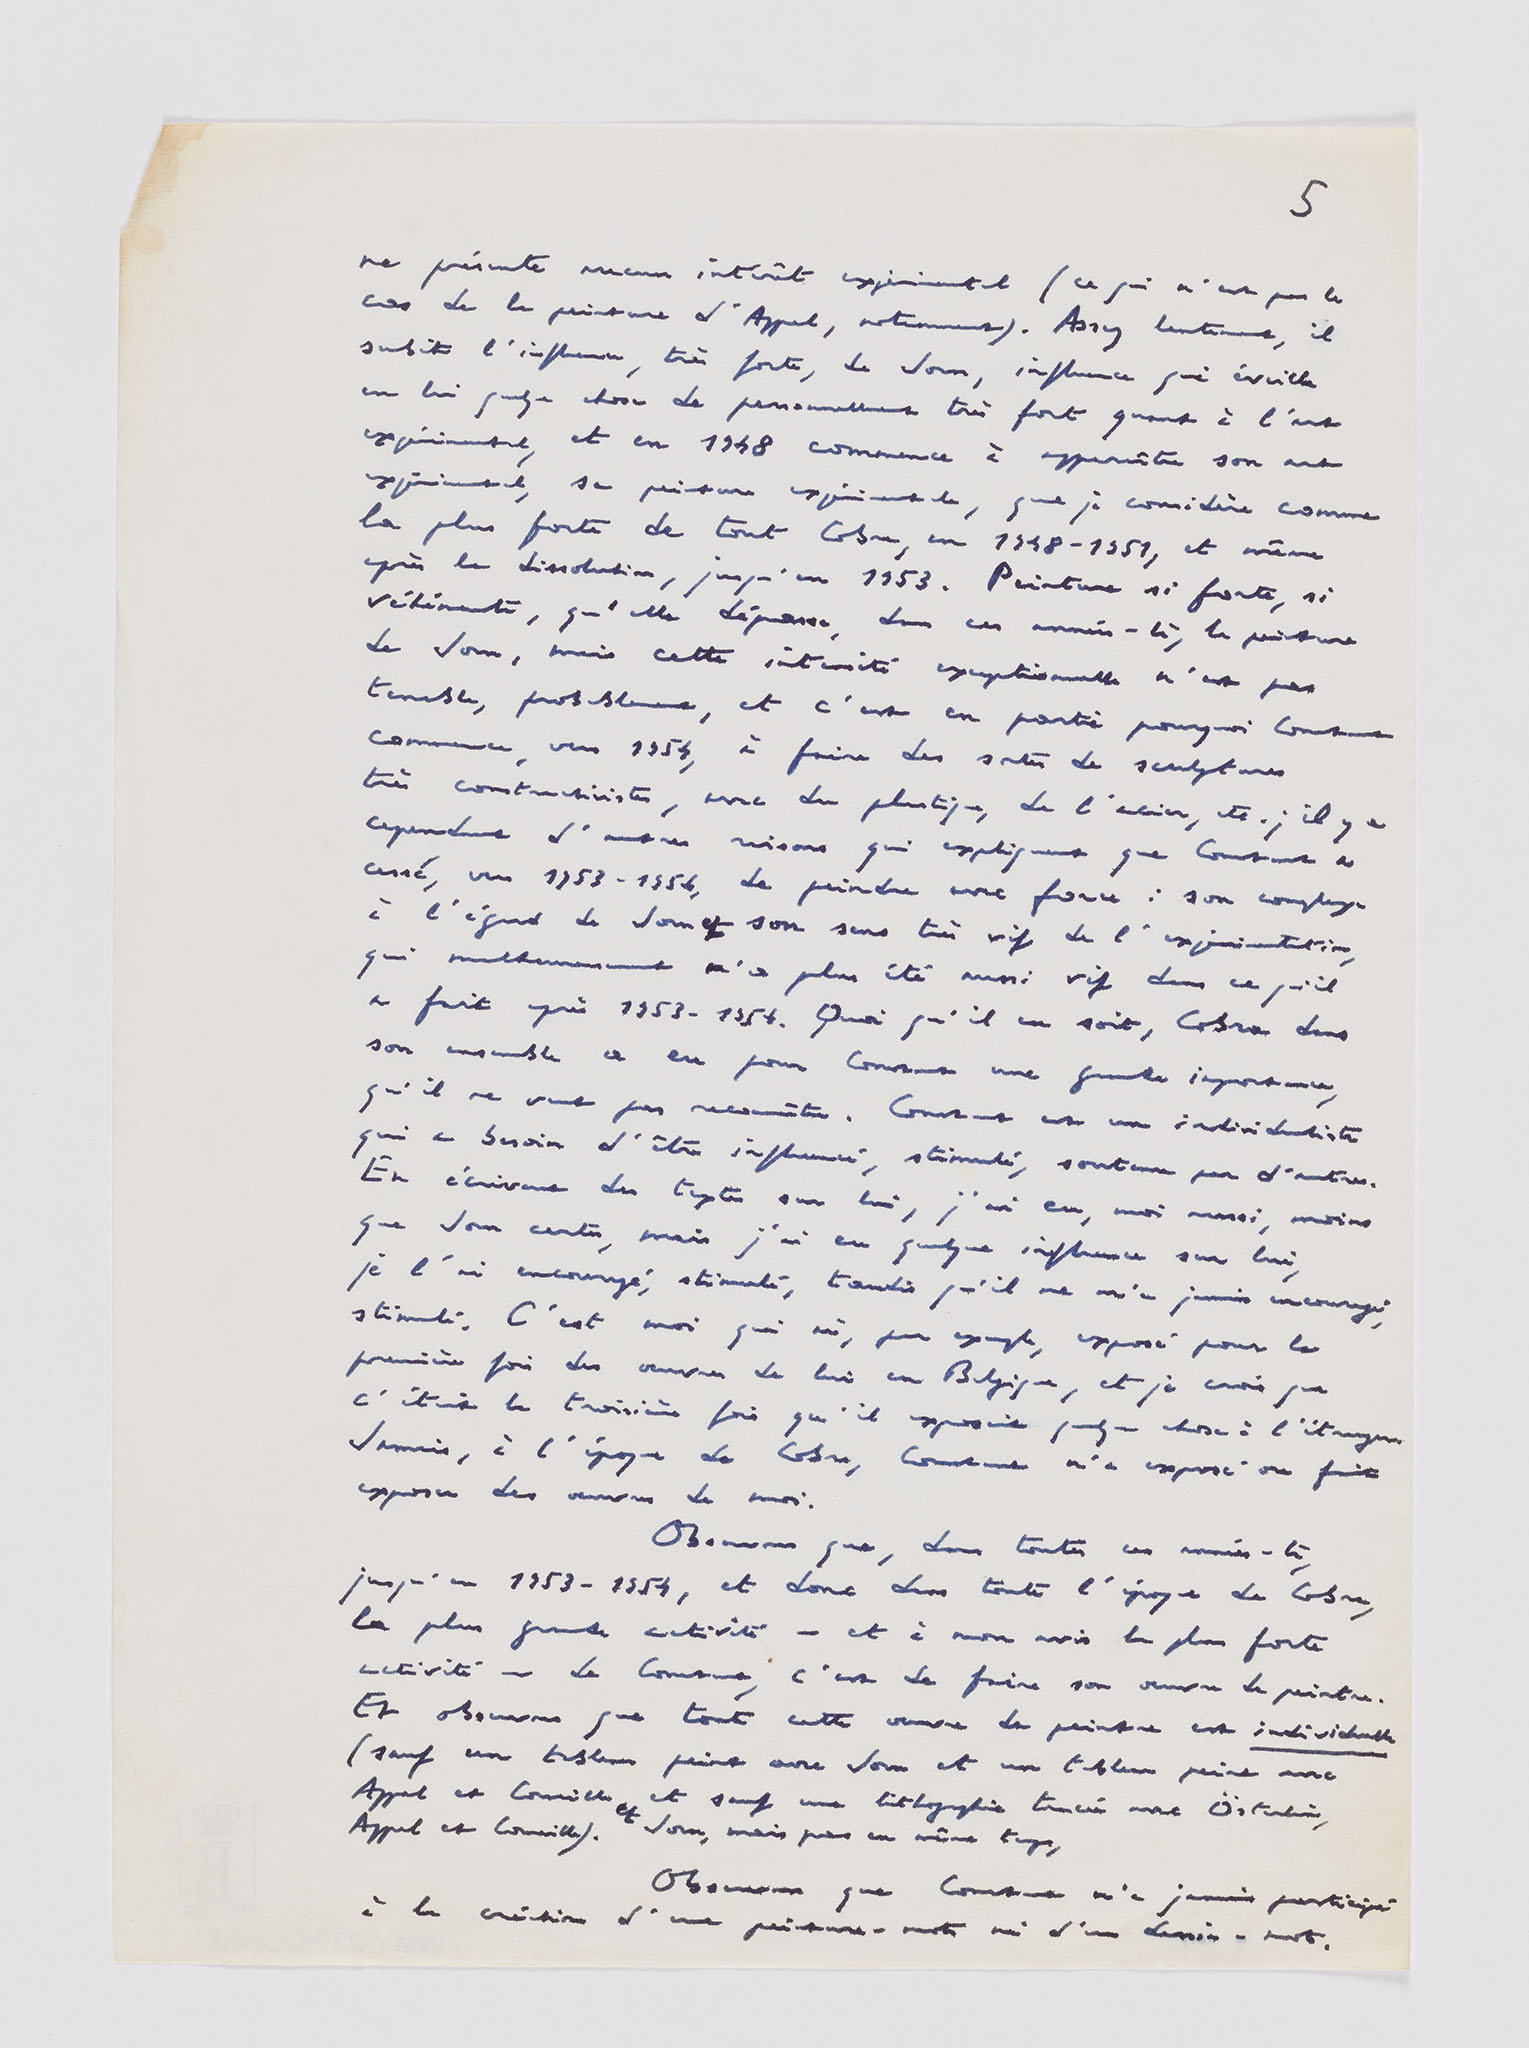 5
ne présente aucun intérêt expérimental (ce qui n'est pas le
cas de la peinture d'Appel, notamment). Assez lentement, il
subit l'influence, très forte, de Jorn, influence qui éveille
en lui quelque chose de personnellement très fort quant à l'art
expérimental, et en 1948 commence à apparaître son art
expérimental, sa peinture expérimentale, que je considère comme
la plus forte de tout Cobra, en 1948-1951, et même
après la dissolution, jusqu'en 1953. Peinture si forte, si
véhémente, qu'elle dépasse, dans ces années-là, la peinture
de Jorn, mais cette intensité exceptionnelle n'est pas
tenable, probablement, et c'est en partie pourquoi Constant
commence, vers 1954, à faire des sortes de sculptures
très constructivistes, avec du plastique, de l'acier, etc. ; il y a
cependant d'autres raisons qui expliquent que Constant a
cessé, vers 1953-1954, de peindre avec force : son complexe
à l'égard de Jorn et son sens très vif de l'expérimentation,
qui malheureusement n'a plus été aussi vif dans ce qu'il
a fait après 1953-1954. Quoi qu'il en soit, Cobra dans
son ensemble a eu pour Constant une grande importance,
qu'il ne veut pas reconnaître. Constant est un individualiste
qui a besoin d'être influencé, stimulé, soutenu par d'autres.
En écrivant des textes sur lui, j'ai eu, moi aussi, moins
que Jorn certes, mais j'ai eu quelque influence sur lui,
je l'ai encouragé, stimulé, tandis qu'il ne m'a jamais encouragé,
stimulé. C'est moi qui ai, par exemple, exposé pour la
première fois des œuvres de lui en Belgique, et je crois que
c'était la troisième fois qu'il exposait quelque chose à l'étranger.
Jamais, à l'époque de Cobra, Constant n'a exposé ou fait
exposer des œuvres de moi.
Observons que, dans toutes ces années-là,
jusqu'en 1953-1954, et donc dans toute l'époque de Cobra,
la plus grande activité - et à mon avis la plus forte
activité - de Constant, c'est de faire son œuvre de peintre.
Et observons que toute cette œuvre de peintre est individuelle
(sauf un tableau peint avec Jorn et un tableau peint avec
Appel et Corneille, et sauf une lithographie tracée avec Österlin,
Appel et Corneille). et Jorn, mais pas en même temps,
Observons que Constant n'a jamais participé
à la création d'une peinture-mots ni d'un dessin-mots.